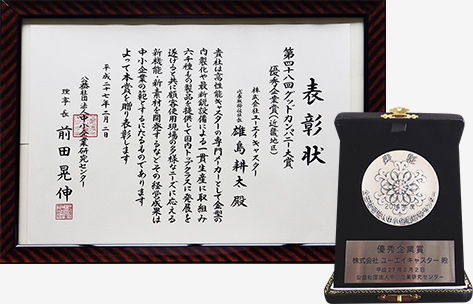 表彰状
第四十八回グッドカンパニー大賞
優秀企業賞(近畿地区)
株式会社ユーエイキャスター
代表取締役社長
雄島耕太 殿
貴社は高性能キャスターの専門メーカーとして金型の
内製化や最新鋭設備による一貫生産に取組み
六千種もの製品を提供して国内トップクラスに発展を
遂げると共に顧客使用現場の多様なニーズに応える
新機能・新素材を開発するなどその経営成果は
中小企業の範とするにたるものであります
よって本賞を贈り表彰します
平成二十七年二月二日
公益社団法人中小企業研究センター
理事長 前田晃伸
優秀企業賞
株式会社 ユーエイキャスター 殿
平成27年2月2日
公益社団法人中小企業研究センター